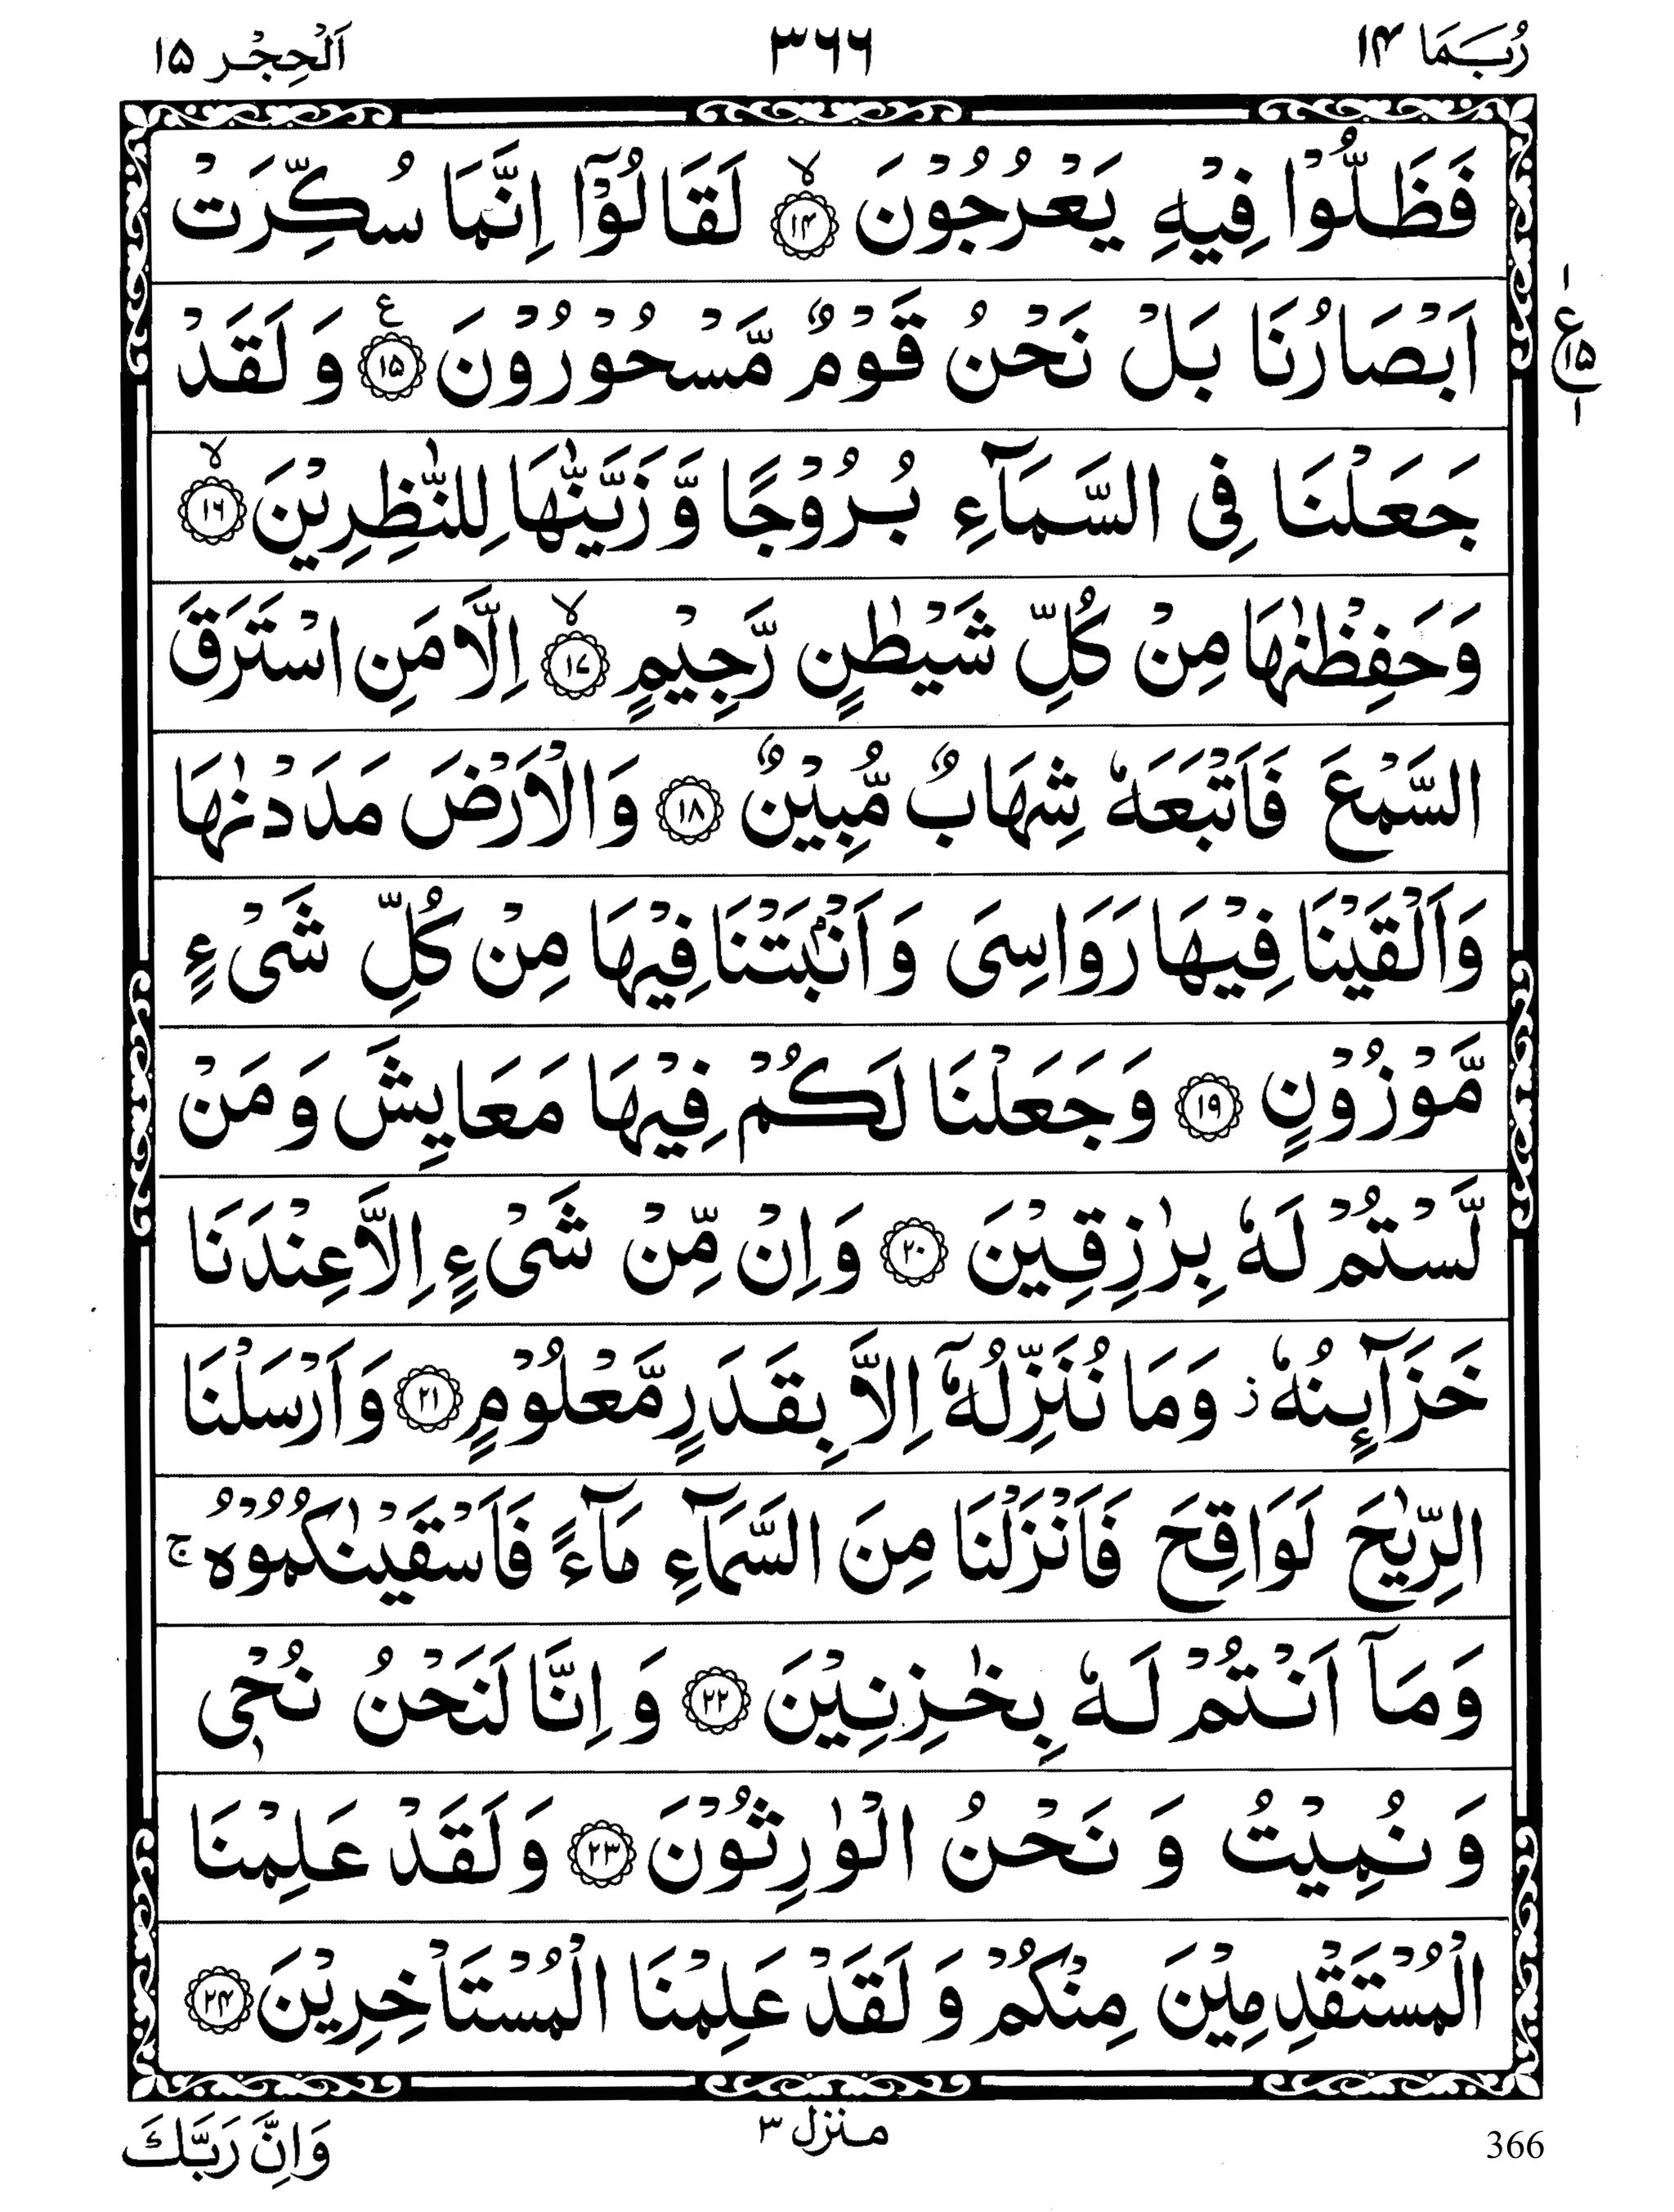 رُبَمَا ۱۴
۳۶۶
اَلْحِجْر ۱۵
فَظَلُّوْا فِيْهِ يَعْرُجُوْنَ ۙ﴿۱۴﴾ لَقَالُوْۤا اِنَّمَا سُكِّرَتْ
اَبْصَارُنَا بَلْ نَحْنُ قَوْمٌ مَّسْحُوْرُوْنَ ﴿۱۵﴾ ع وَ لَقَدْ
ع ۱۵ ۱ ۱
جَعَلْنَا فِى السَّمَآءِ بُرُوْجًا وَّ زَيَّنّٰهَا لِلنّٰظِرِيْنَ ۙ﴿۱۶﴾
وَحَفِظْنٰهَا مِنْ كُلِّ شَيْطٰنٍ رَّجِيْمٍ ۙ﴿۱۷﴾ اِلَّا مَنِ اسْتَرَقَ
السَّمْعَ فَاَتْبَعَهٗ شِهَابٌ مُّبِيْنٌ ﴿۱۸﴾ وَالْاَرْضَ مَدَدْنٰهَا
وَاَلْقَيْنَا فِيْهَا رَوَاسِىَ وَ اَنْۢبَتْنَا فِيْهَا مِنْ كُلِّ شَىْءٍ
مَّوْزُوْنٍ ﴿۱۹﴾ وَجَعَلْنَا لَكُمْ فِيْهَا مَعَايِشَ وَ مَنْ
لَّسْتُمْ لَهٗ بِرٰزِقِيْنَ ﴿۲۰﴾ وَ اِنْ مِّنْ شَىْءٍ اِلَّا عِنْدَنَا
خَزَآئِنُهٗ ز وَمَا نُنَزِّلُهٗۤ اِلَّا بِقَدَرٍ مَّعْلُوْمٍ ﴿۲۱﴾ وَ اَرْسَلْنَا
الرِّيٰحَ لَوَاقِحَ فَاَنْزَلْنَا مِنَ السَّمَآءِ مَآءً فَاَسْقَيْنٰكُمُوْهُ ۚ
وَمَاۤ اَنْتُمْ لَهٗ بِخٰزِنِيْنَ ﴿۲۲﴾ وَ اِنَّا لَنَحْنُ نُحْىٖ
وَ نُمِيْتُ وَ نَحْنُ الْوٰرِثُوْنَ ﴿۲۳﴾ وَ لَقَدْ عَلِمْنَا
الْمُسْتَقْدِمِيْنَ مِنْكُمْ وَ لَقَدْ عَلِمْنَا الْمُسْتَاْخِرِيْنَ ﴿۲۴﴾
366
منزل ۳
وَاِنَّ رَبَّكَ